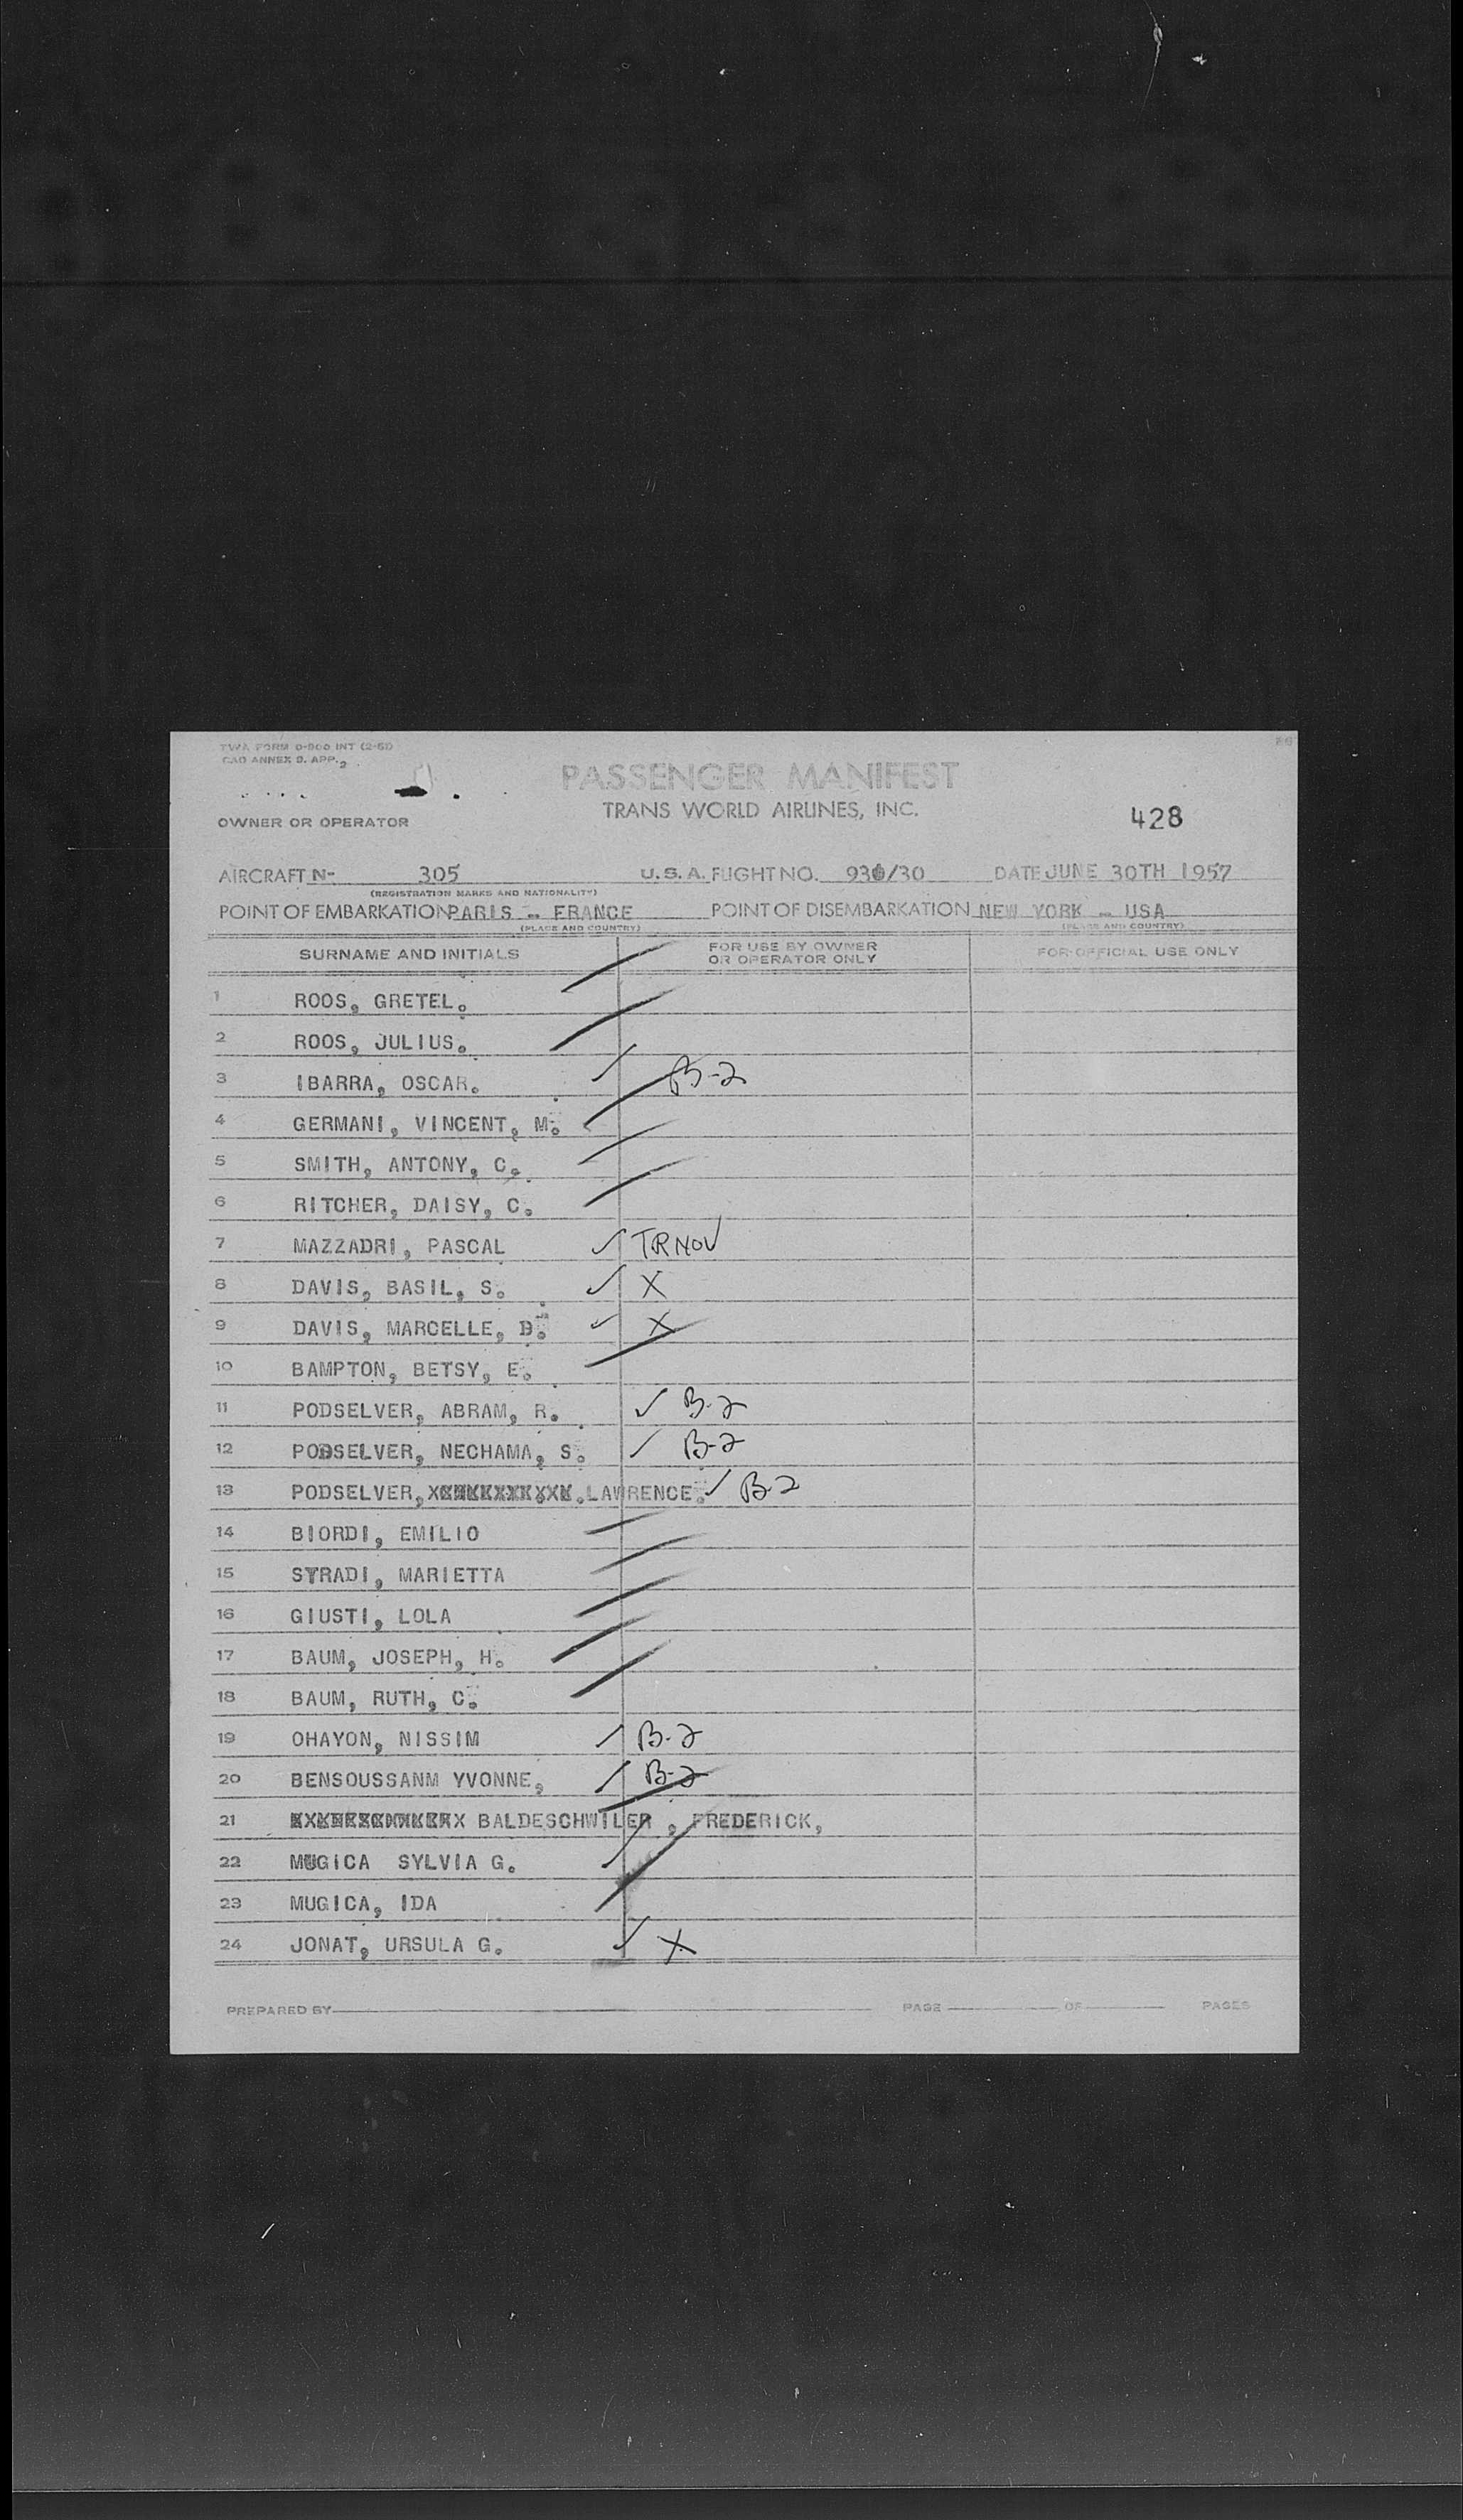 TWA FORM O-800 INT (2-51)
CAO ANNEX 9. APP. 2
PASSENGER MANIFEST
TRANS WORLD AIRLINES, INC.
428
OWNER OR OPERATOR
AIRCRAFT N- 305 U.S.A. FLIGHT NO. 930/30 DATE JUNE 30TH 1957
(REGISTRATION MARKS AND NATIONALITY)
POINT OF EMBARKATION PARIS - FRANCE POINT OF DISEMBARKATION NEW YORK - USA
(PLACE AND COUNTRY) (PLACE AND COUNTRY)
SURNAME AND INITIALS FOR USE BY OWNER OR OPERATOR ONLY FOR OFFICIAL USE ONLY
1 ROOS, GRETEL.
2 ROOS, JULIUS.
3 IBARRA, OSCAR. B-2
4 GERMANI, VINCENT, M.
5 SMITH, ANTONY, C.
6 RITCHER, DAISY, C.
7 MAZZADRI, PASCAL ✓ TRNOV
8 DAVIS, BASIL, S. ✓ X
9 DAVIS, MARCELLE, D. ✓ X
10 BAMPTON, BETSY, E.
11 PODSELVER, ABRAM, R. ✓ B-2
12 PODSELVER, NECHAMA, S. ✓ B-2
13 PODSELVER, LAWRENCE. ✓ B-2
14 BIORDI, EMILIO
15 STRADI, MARIETTA
16 GIUSTI, LOLA
17 BAUM, JOSEPH, H.
18 BAUM, RUTH, C.
19 OHAYON, NISSIM ✓ B-2
20 BENSOUSSANM YVONNE, ✓ B-2
21 BALDESCHWILER , FREDERICK,
22 MUGICA SYLVIA G.
23 MUGICA, IDA
24 JONAT, URSULA G. ✓ X
PREPARED BY PAGE OF PAGES